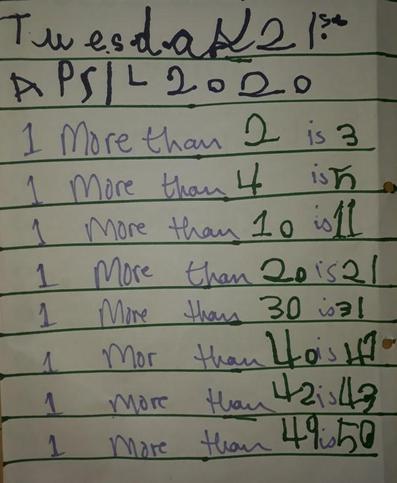 Tuesday 21st
APSIL 2020
1 More than 2 is 3
1 More than 4 is 5
1 More than 10 is 11
1 More than 20 is 21
1 More than 30 is 31
1 Mor than 40 is 41
1 more than 42 is 43
1 more than 49 is 50